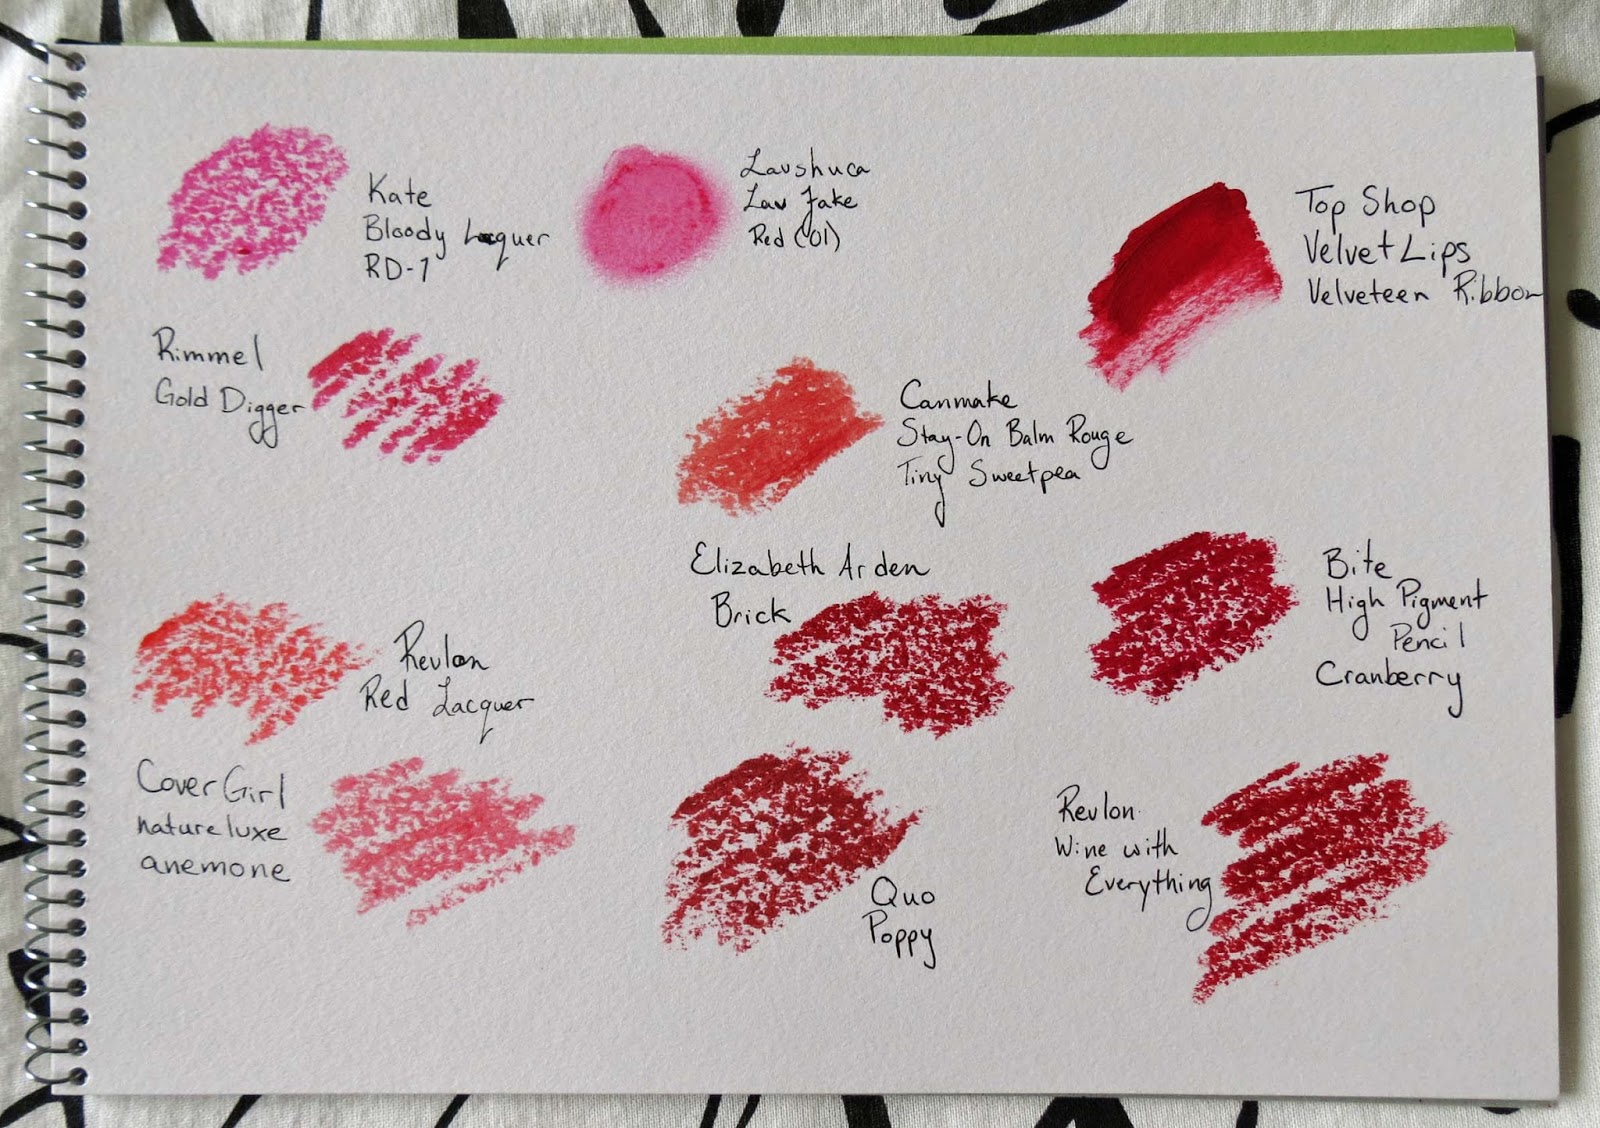 Kate
Bloody Lacquer
RD-1
Lavshuca
Lav Jake
Red (01)
Top Shop
Velvet Lips
Velveteen Ribbon
Rimmel
Gold Digger
Canmake
Stay-On Balm Rouge
Tiny Sweetpea
Elizabeth Arden
Brick
Bite
High Pigment
Pencil
Cranberry
Revlon
Red Lacquer
CoverGirl
natureluxe
anemone
Quo
Poppy
Revlon
Wine with
Everything